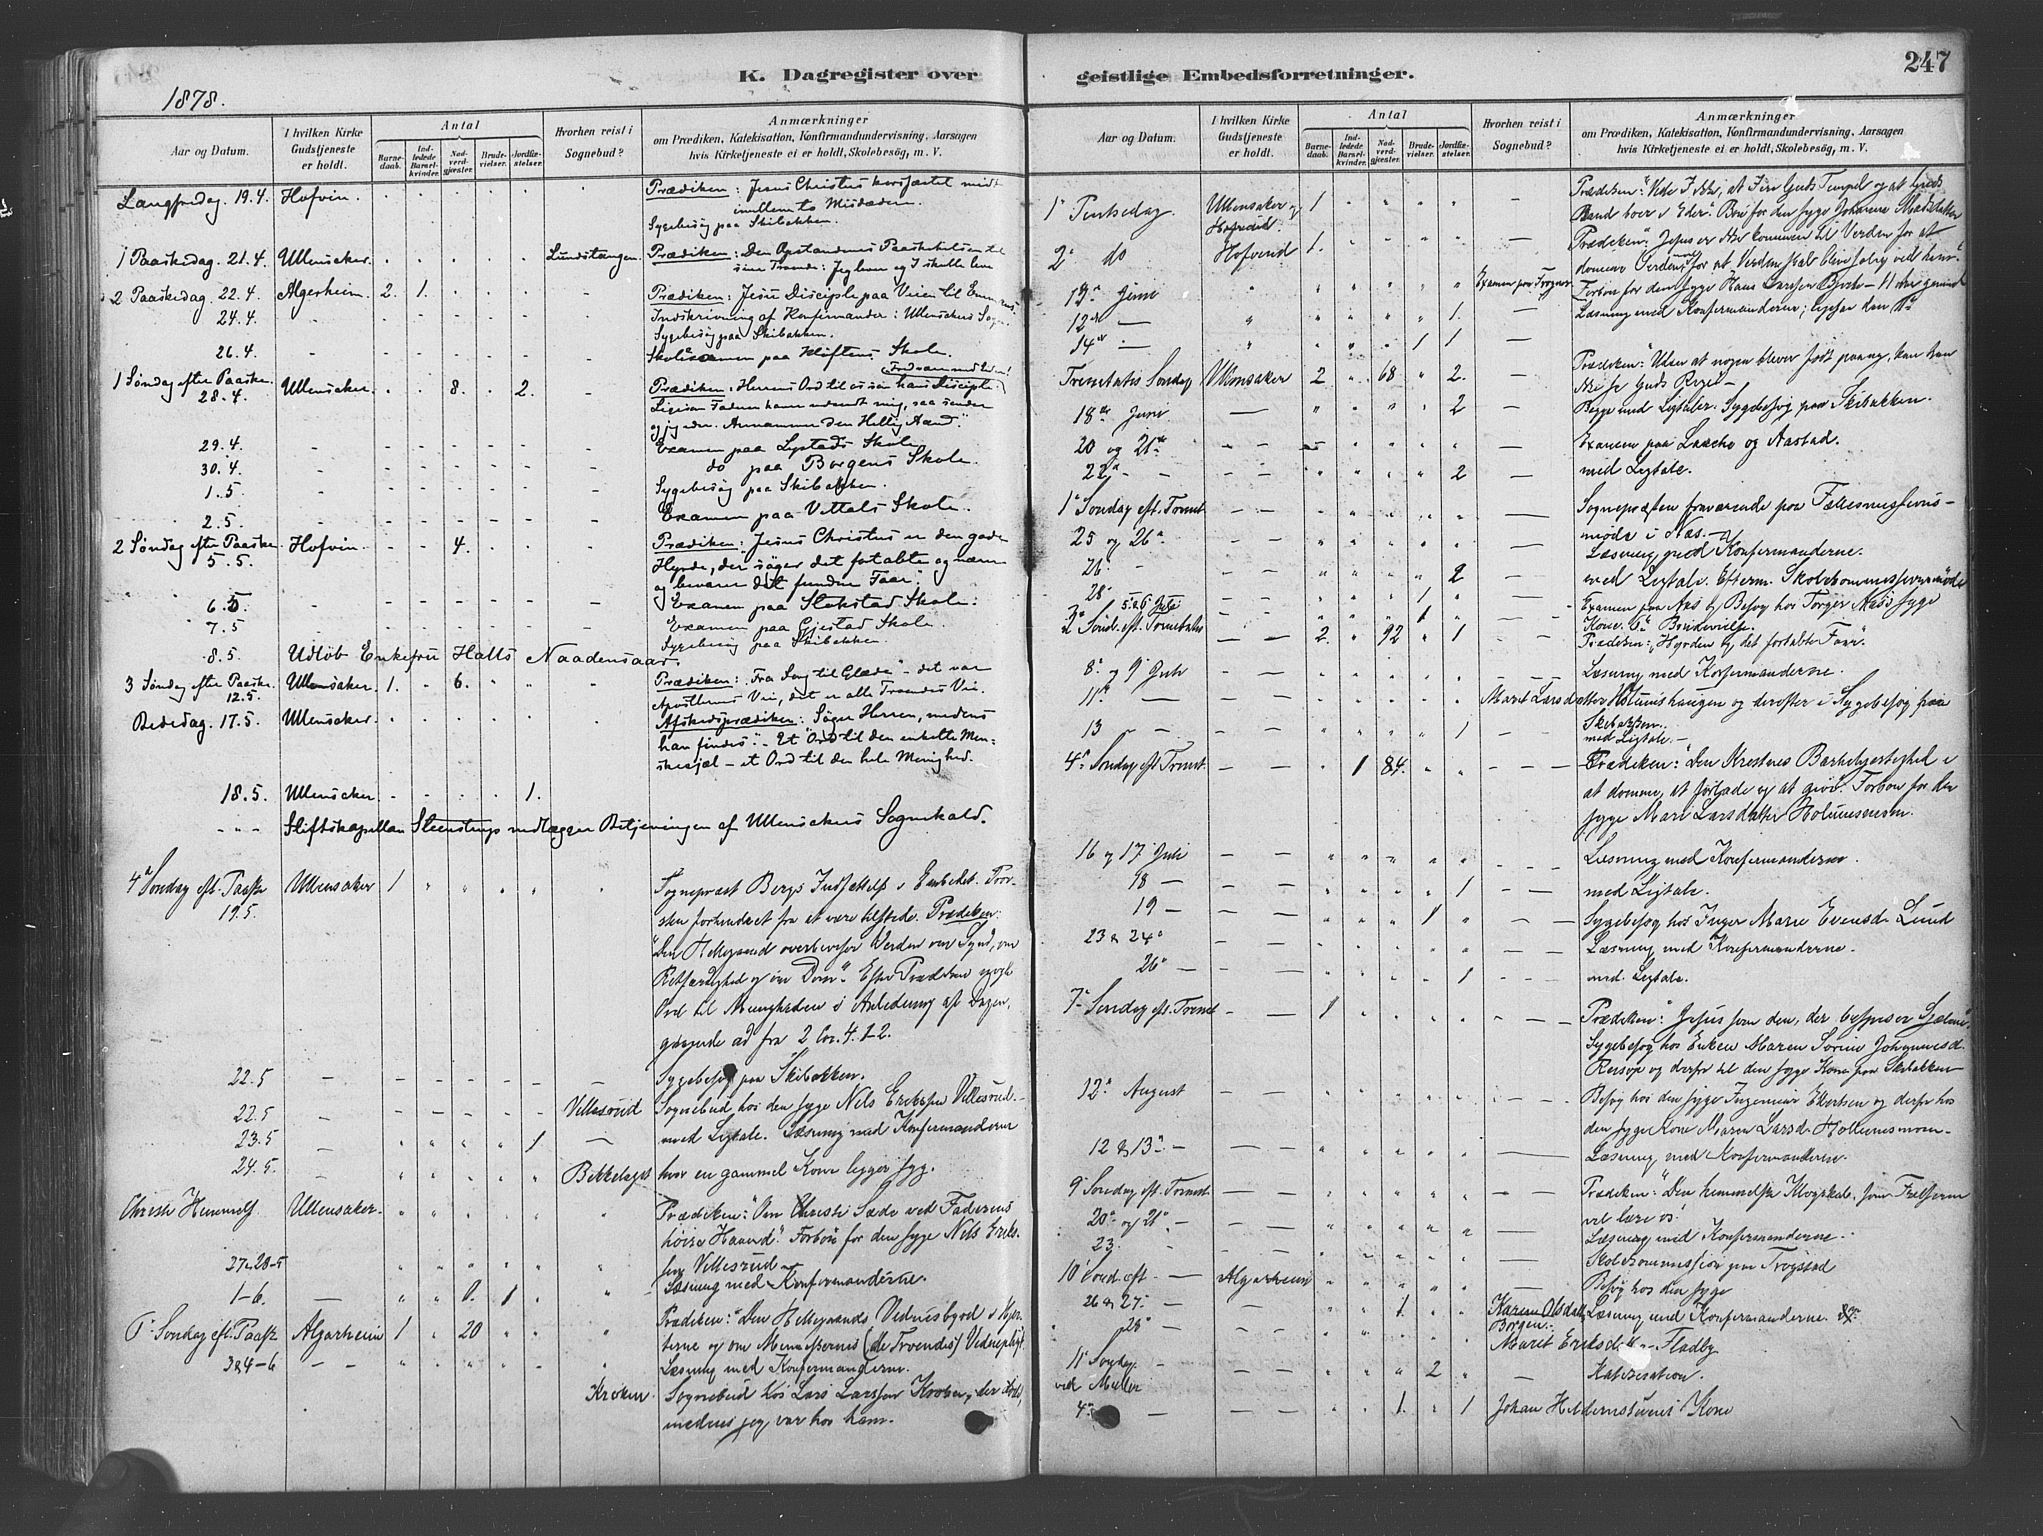 K. Dagregister over
1878.
Aar og Datum.
I hvilken Kirke Gudstjeneste er holdt.
Antal
Barnedaab.
Indledede Barselkvinder.
Nadverdgjæster.
Brudevielser.
Jordfæstelser.
Hvorhen reist i Sognebud?
Anmærkninger
om Prædiken, Katekisation, Konfirmandundervisning, Aarsagen
hvis Kirketjeneste ei er holdt, Skolebesøg, m. V.
Langfredag. 19.4. Hofvin. Prædiken: Jesus Christus korsfæstet midt
imellem to Misdædere.
Sygebesøg paa Skibakken.
1 Paaskedag. 21.4. Ullensaker. Lundstangen. Prædiken: Den Opstandnes Paaskehilsen til
sine Troende: Jeg lever og I skulle leve
2 Paaskedag. 22.4. Algerheim. 2. 1. Prædiken: Jesu Disciple paa Veien til Emmaus.
24.4. Indskrivning af Konfirmander i Ullensakers Sogn.
Sygebesøg paa Skibakken.
26.4. Skoleexamen paa Kløftens Skole.
1 Søndag efter Paaske. 28.4. Ullensaker. 8. 2. Prædiken: Herrens Ord til os som hans Disciple:
Ligesom Faderen haver udsendt mig, saa sender
og jeg eder. Annammer den Hellig Aand."
29.4. Examen paa Lystads Skole
30.4. do paa Borgens Skole.
1.5 Sygebesøg paa Skibakken.
2.5. Examen paa Vittals Skole.
2 Søndag efter Paaske. 5.5. Hofvin. 4. Prædiken: Jesus Christus er den gode
Hyrde, der søger det fortabte og nærer
og bevarer det fundne Faar".
6.5 Examen paa Slokstad Skole.
7.5 Examen paa Gjestad Skole.
8.5. Sygebesøg paa Skibakken
Udløb Enkefru Halls Naadensaar.
3 Søndag efter Paaske. 12.5. Ullensaker. 1. 6. Prædiken: "Fra Sorg til Glæde" - det var
Apostlernes Vei, det er alle Troendes Vei.
Bededag. 17.5. Ullensaker. Afskedsprædiken: Søger Herren, medens
han findes". - Et Ord til den enkelte Men-
neskesjæl - et Ord til den hele Menighed.
18.5. Ullensaker 1.
Stiftskapellan Steenstrup nedlægger Betjeningen af Ullensakers Sognekald.
4de Søndag eft. Paaske 19.5. Ullensaker 1 Sognepræst Bergs Indsættelse i Embedet. Prov-
sten forhindret fra at være tilstede. Prædiken:
"Den Helligaand overbeviser Verden om Synd, om
Retfærdighed og om Dom". Efter Prædiken
Ord til Menigheden i Anledning af Dagen,
gaaende ud fra 2 Cor. 4. 1-2.
22.5 Sygebesøg paa Skibakken.
22.5 Villesrud Sognebud hos den syge Nils Eriksen Villesrud.
23.5 1 med Ligtale. Læsning med Konfirmanderne
24.5. Bekkelaget hvor en gammel Kone ligger syg.
Christi Himmelf. Ullensaker. Prædiken: "Om Christi Sæde ved Faderens
høire Haand". Forbøn for den syge Nils Erik-
sen Villesrud
27 & 28-5 Læsning med Konfirmanderne.
1-6. 0. 1
6te Søndag eft. Paaske Algarheim 1 20 Prædiken: "Den Helligaands Vidnesbyrd i Hjer-
terne og om Menneskenes (de Troendes) Vidnepligt.
3 & 4-6 Læsning med Konfirmanderne.
Kroken. Sognebud hos Lars Larssen Kroken, der døde,
medens jeg var hos ham.
geistlige Embedsforretninger.
247
Aar og Datum.
I hvilken Kirke Gudstjeneste er holdt.
Antal
Barnedaab.
Indledede Barselkvinder.
Nadverdgjæster.
Brudevielser.
Jordfæstelser.
Hvorhen reist i Sognebud?
Anmærkninger
om Prædiken, Katekisation, Konfirmandundervisning, Aarsagen
hvis Kirketjeneste ei er holdt, Skolebesøg, m. V.
1ste Pintsedag. Ullensaker og Hofvind. 1 Prædiken: "Vide I ikke, at I ere Guds Tempel og at Guds
Aand boer i Eder". Bøn for den syge Johanne
2den do Hofvind 1. Prædiken: "Jesus er ikke kommen til Verden for at
dømme Verden, men for at Verden skal blive salig ved ham".
Forbøn for den syge Hans Larssen
12te Juni Examen paa Frogner. Læsning med Konfirmanderne;
12te 1.
14de 1 1
Trinitatis Søndag Ullensaker 2 68 2. Prædiken: "Uden at nogen bliver født paany, kan han
ikke se Guds Rige".
18de Juni 2 Begge med Ligtaler. Sygebesøg paa Skibakken.
20 og 21de Examen paa og Aastad.
22de 2 med Ligtale.
1ste Søndag eft. Trinit. Sognepræsten fraværende paa Fællesmissions-
møde i Næs.
25 og 26de Læsning med Konfirmanderne.
26. 2 med Ligtale. Efterm. Skolekommissionsmøde
28 Examen paa Aas og Besøg hos Torger syge
Kone.
3die Sønd. eft. Trinitatis 2 92 1 Prædiken: "Hyrden og det fortabte Faar".
8de og 9de Juli Læsning med Konfirmanderne.
11te Marit Larsdatter Holumshaugen og derefter i Sygebesøg paa
Skibakken.
13 1 med Ligtale.
4de Søndag eft. Trinit. 1 84. Prædiken: "Den Kristnes Barmhjertighed i
at dømme, at forlade og at give. Forbøn for den
syge Mari Larsdatter
16 og 17 Juli Læsning med Konfirmanderne.
18 1 med Ligtale.
19 1 Sygebesøg hos Inger Marie Evensd. Lund
23 & 24de Læsning med Konfirmanderne.
26de 1 med Ligtale.
7de Søndag eft. Trinit 1 Prædiken: "Jesus som den, der
Sygebesøg hos Enken Maren Sørine Johannesd.
og derfra til den syge Kone paa Skibakken
12te August Besøg hos den syge Ingeniør og derfra hos
den syge Kone Maren Larsd.
12 & 13de Læsning med Konfirmanderne.
9de Søndag eft. Trinit. Prædiken: "Den himmelske Klogskab, som Frelseren
vil lære os!
20de og 21de Læsning med Konfirmanderne.
23. Skolekommission paa Trøgstad
10de Sønd. eft. Algarheim Besøg hos den syge
26 & 27. 1. Karen Olsdatter Borgen Læsning med Konfirmanderne.
28 Marit Eriksdatter Fladby
11te Søndag 2 Katekisation.
4de 1. 1 Johan Kone